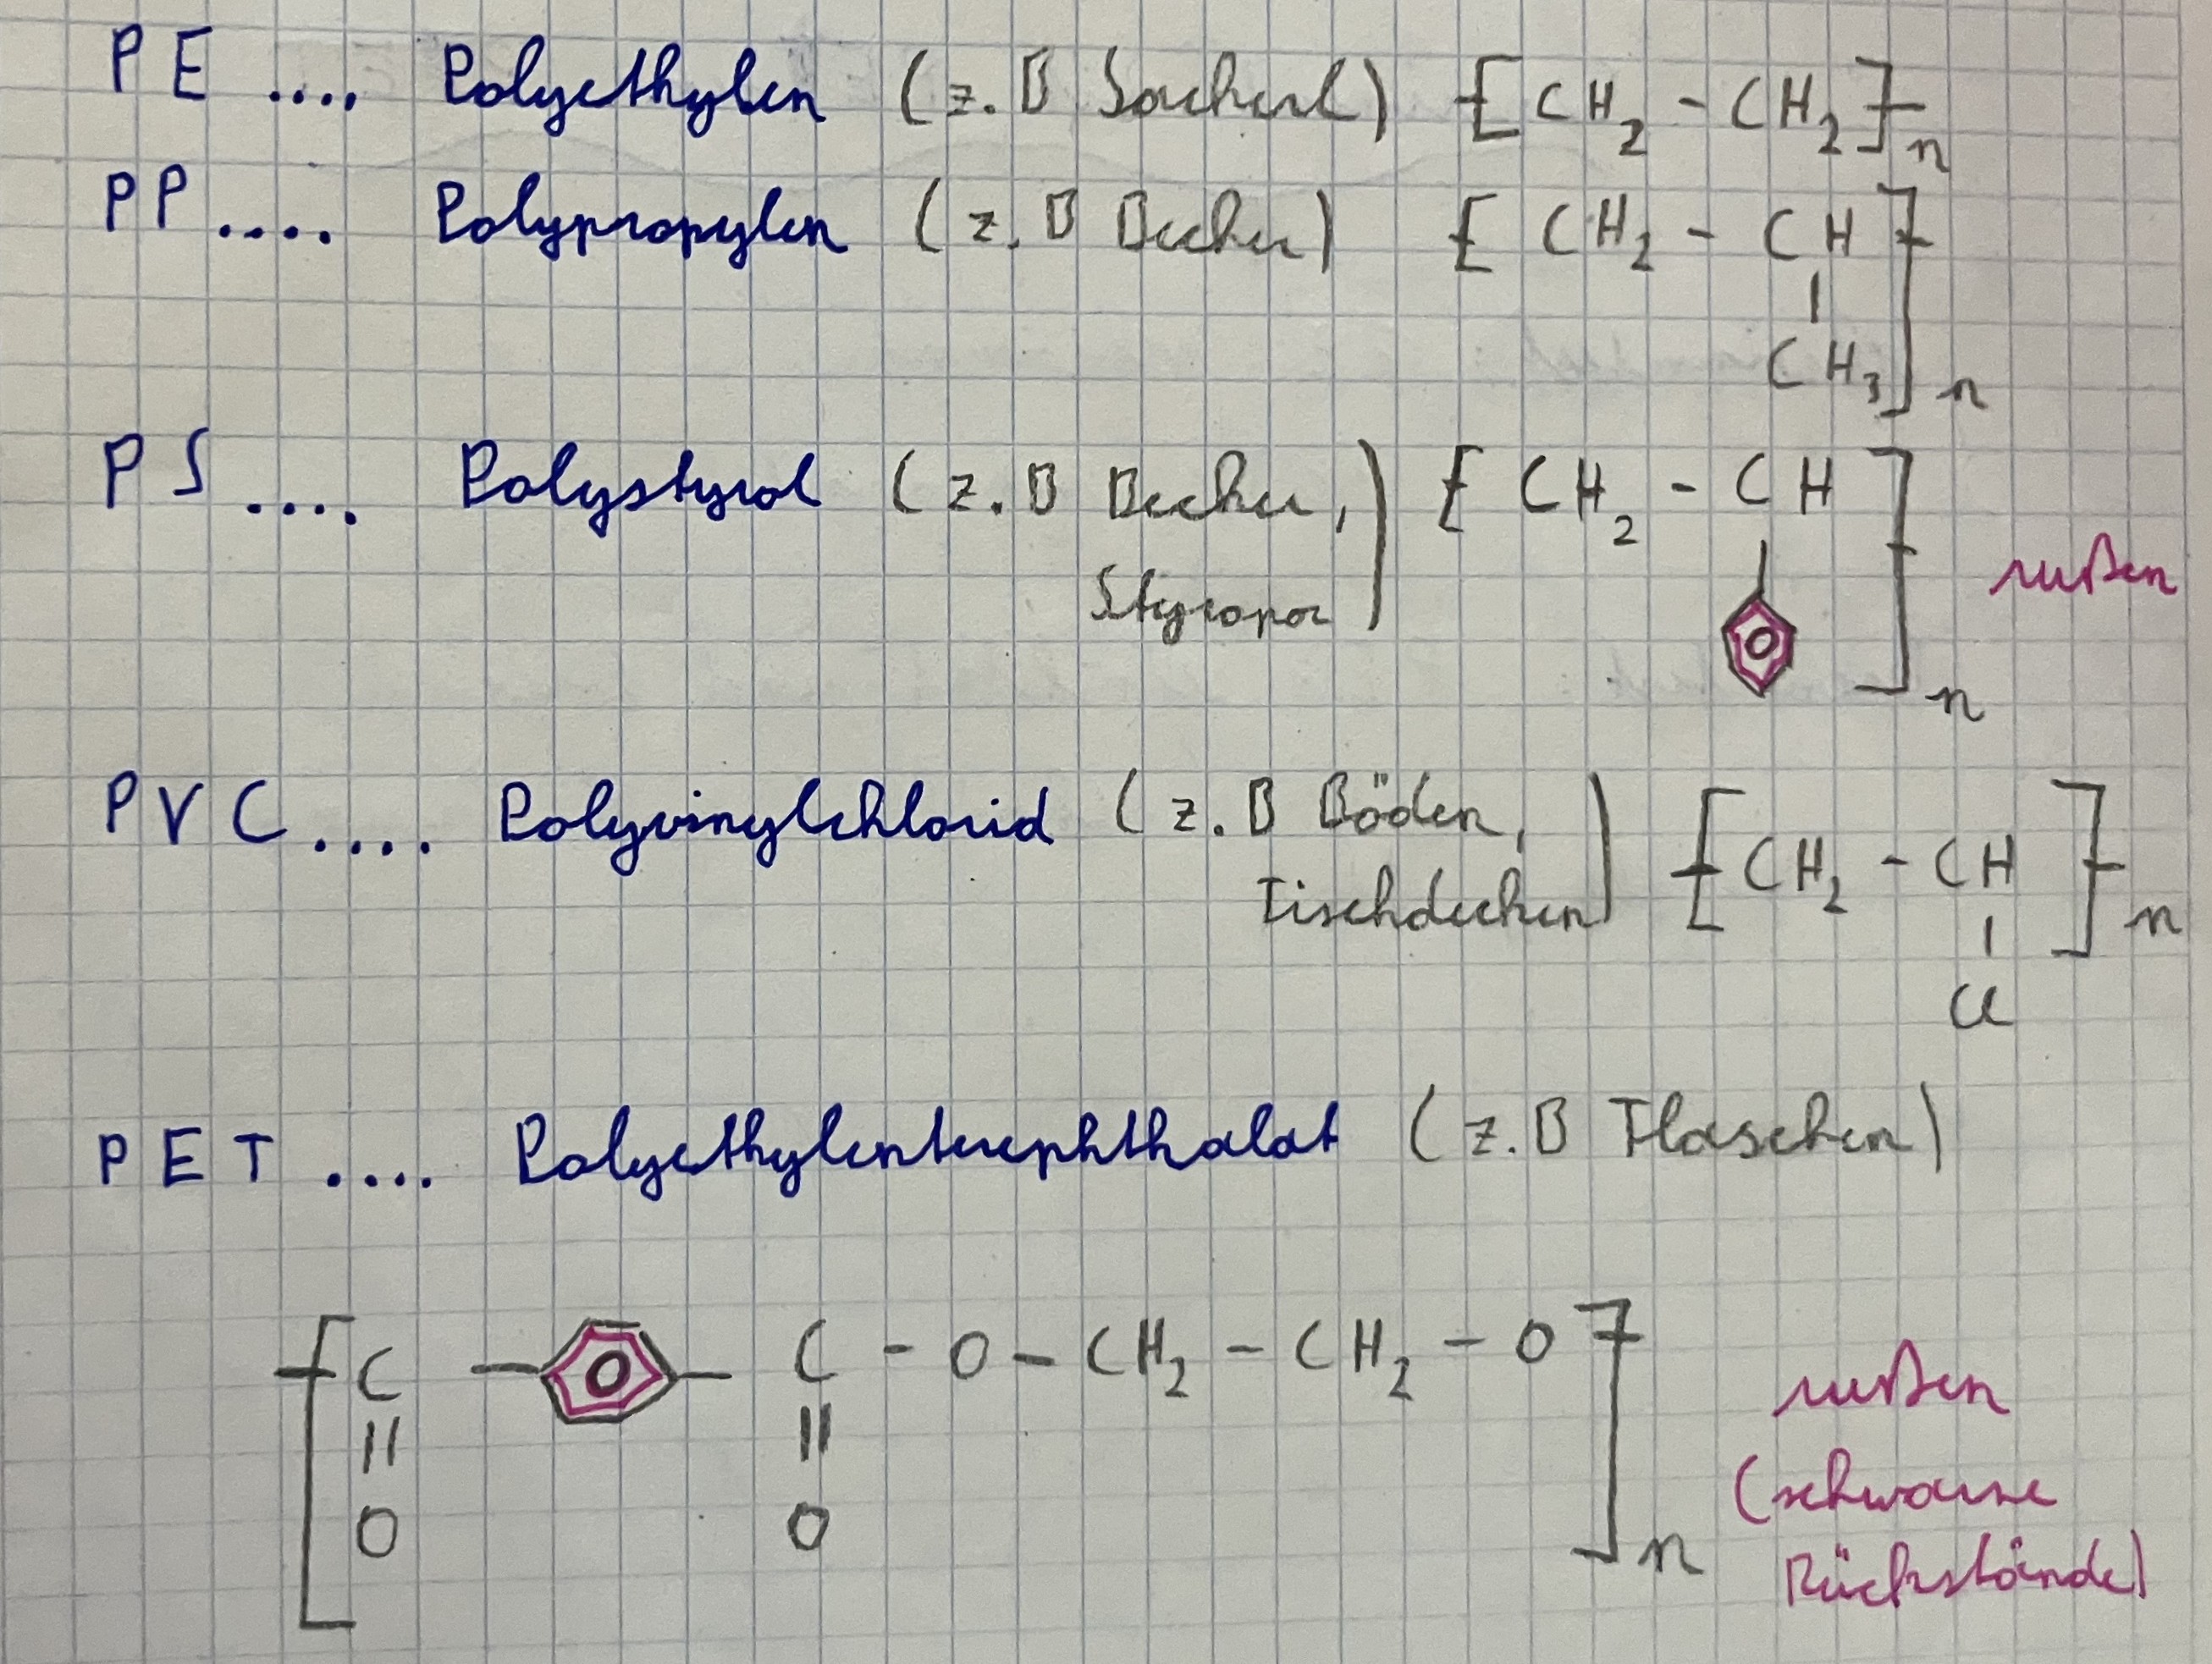 PE .... Polyethylen (z.B Sackerl) [CH₂ - CH₂]n
PP .... Polypropylen (z.B Becher) [CH₂ - CH]n
|
CH₃
PS .... Polystyrol (z.B Becher, [CH₂ - CH]n
Styropor) rußen
PVC .... Polyvinylchlorid (z.B Böden, [CH₂ - CH]n
Tischdecken)
|
Cl
PET .... Polyethylenterephthalat (z.B Flaschen)
[C - - C - O - CH₂ - CH₂ - O]n rußen
|| ||
O O
(schwarze
Rückstände)